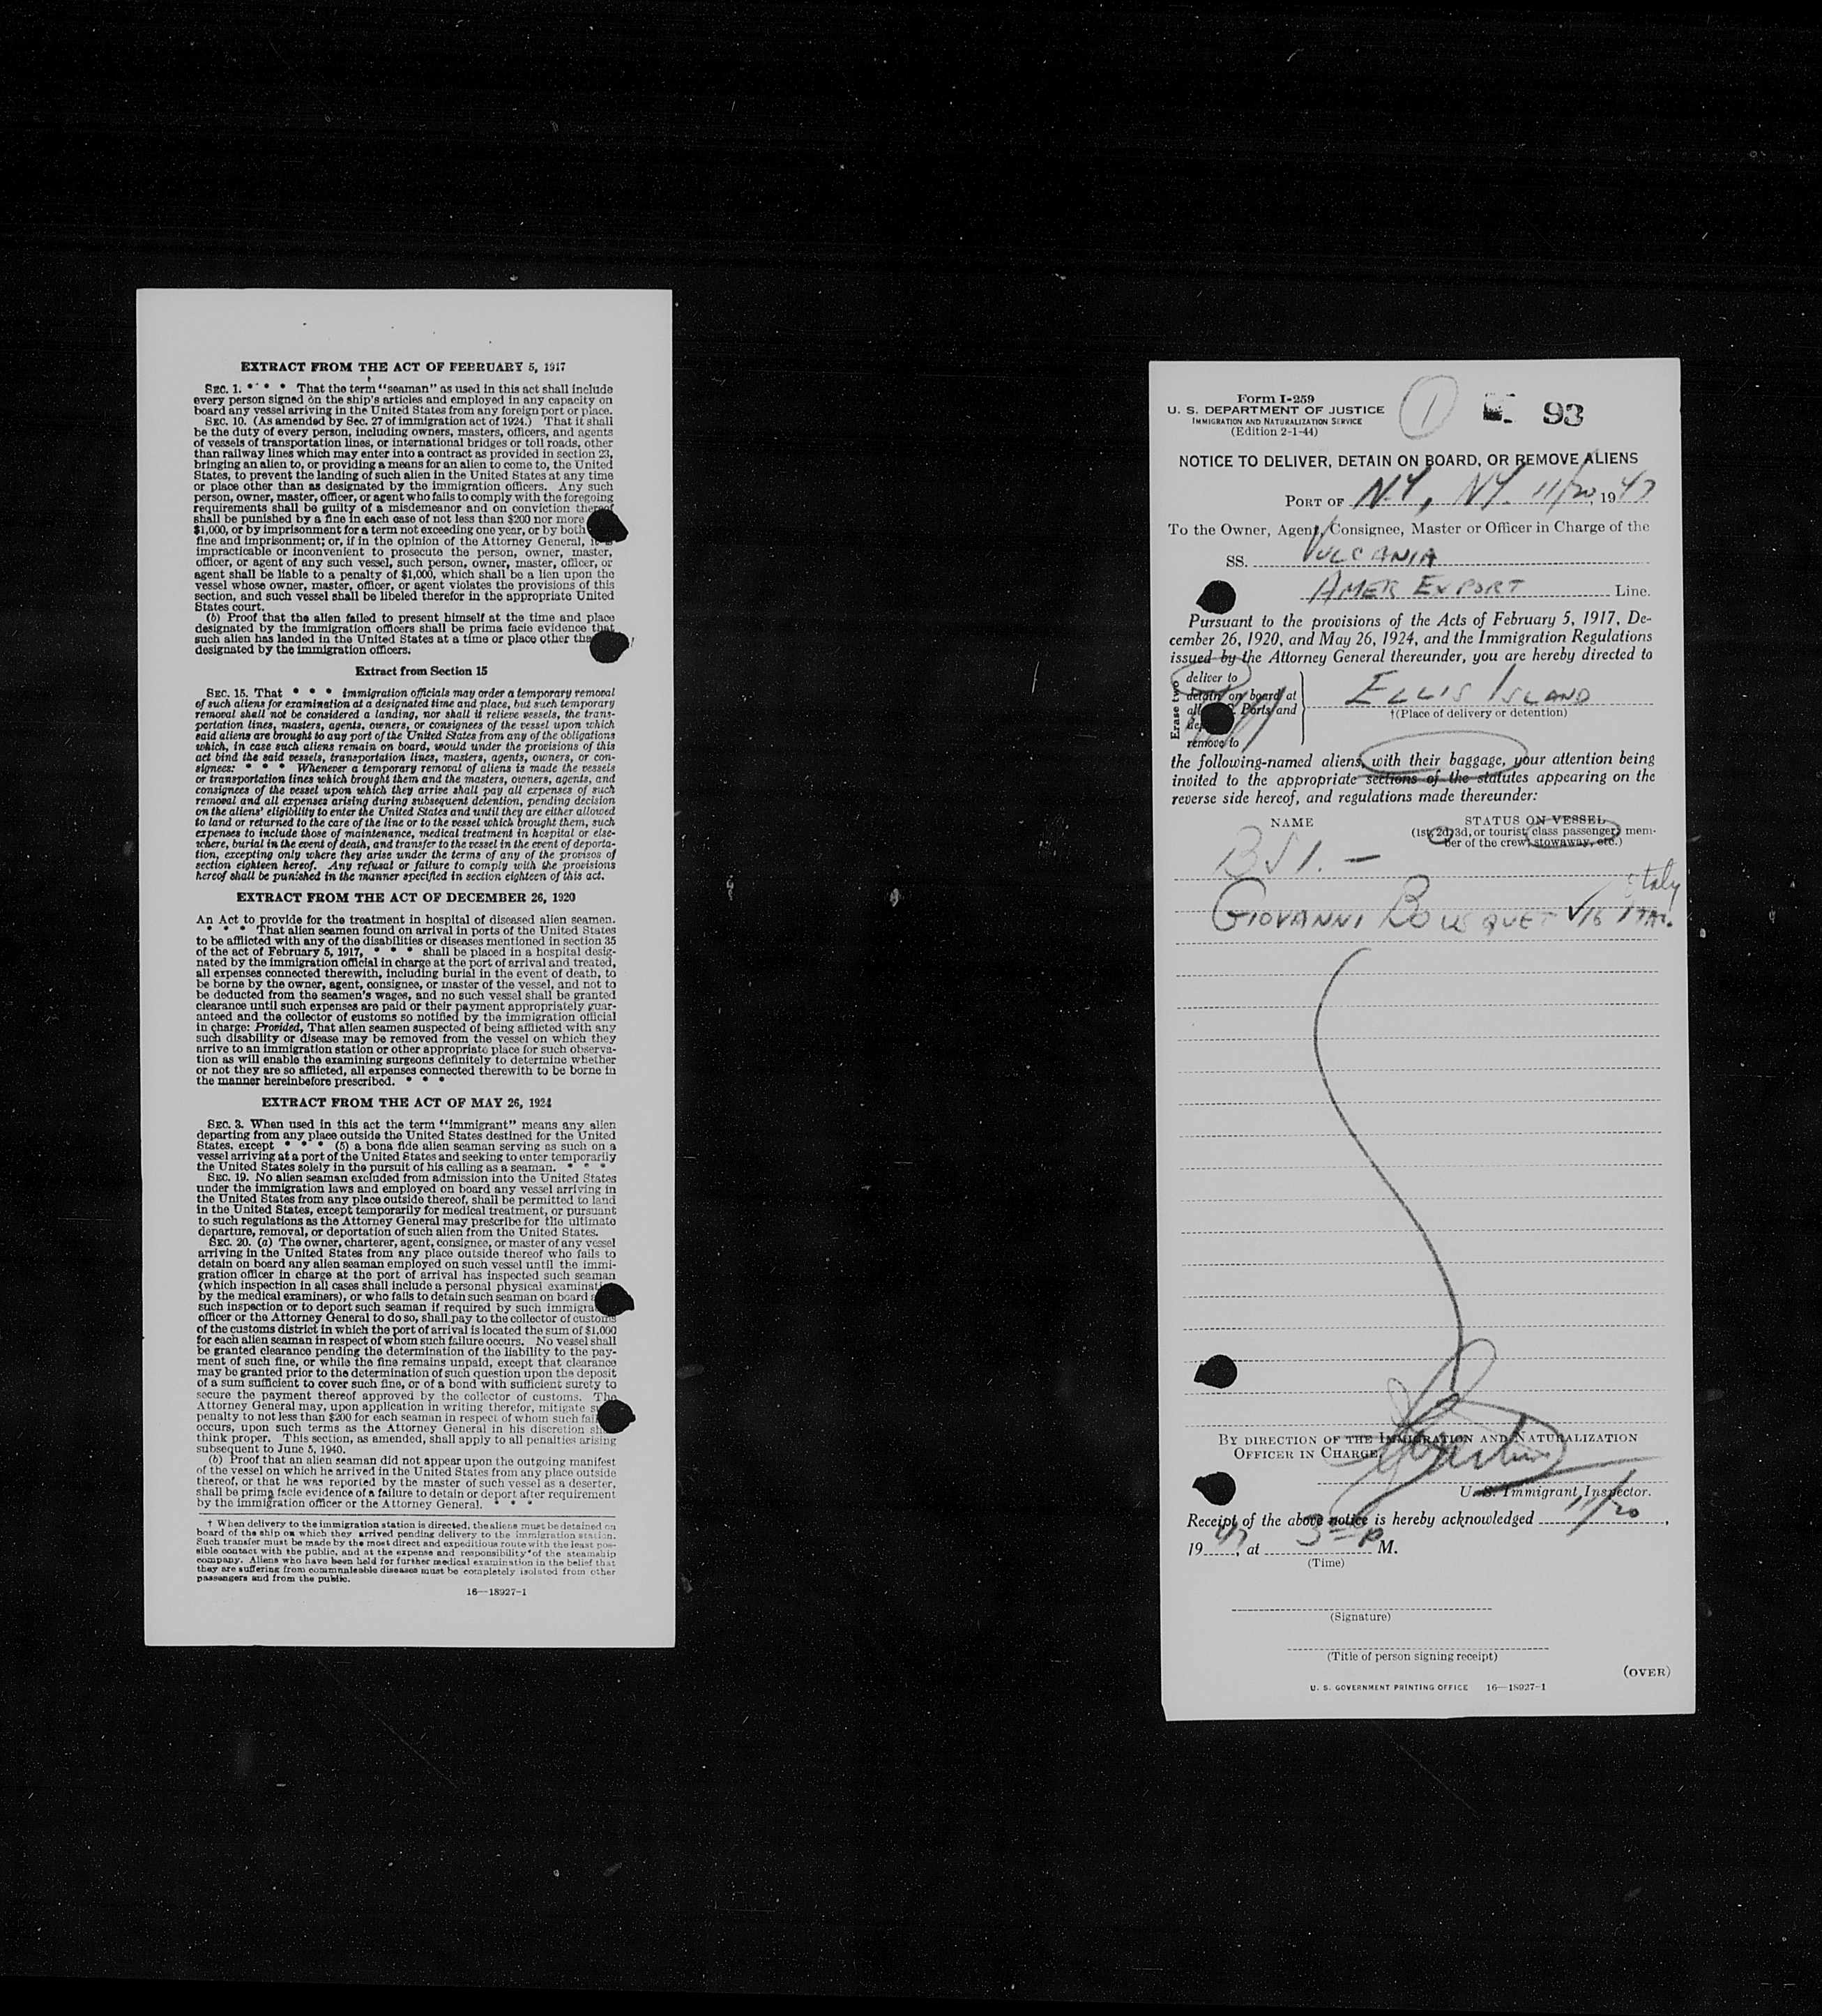 EXTRACT FROM THE ACT OF FEBRUARY 5, 1917
SEC. 1. * * * That the term "seaman" as used in this act shall include
every person signed on the ship's articles and employed in any capacity on
board any vessel arriving in the United States from any foreign port or place.
SEC. 10. (As amended by Sec. 27 of immigration act of 1924.) That it shall
be the duty of every person, including owners, masters, officers, and agents
of vessels of transportation lines, or international bridges or toll roads, other
than railway lines which may enter into a contract as provided in section 23,
bringing an alien to, or providing a means for an alien to come to, the United
States, to prevent the landing of such alien in the United States at any time
or place other than as designated by the immigration officers. Any such
person, owner, master, officer, or agent who fails to comply with the foregoing
requirements shall be guilty of a misdemeanor and on conviction thereof
shall be punished by a fine in each case of not less than $200 nor more
$1,000, or by imprisonment for a term not exceeding one year, or by both
fine and imprisonment; or, if in the opinion of the Attorney General, it is
impracticable or inconvenient to prosecute the person, owner, master,
officer, or agent of any such vessel, such person, owner, master, officer, or
agent shall be liable to a penalty of $1,000, which shall be a lien upon the
vessel whose owner, master, officer, or agent violates the provisions of this
section, and such vessel shall be libeled therefor in the appropriate United
States court.
(b) Proof that the alien failed to present himself at the time and place
designated by the immigration officers shall be prima facie evidence that
such alien has landed in the United States at a time or place other tha
designated by the immigration officers.
Extract from Section 15
SEC. 15. That * * * immigration officials may order a temporary removal
of such aliens for examination at a designated time and place, but such temporary
removal shall not be considered a landing, nor shall it relieve vessels, the trans-
portation lines, masters, agents, owners, or consignees of the vessel upon which
said aliens are brought to any port of the United States from any of the obligations
which, in case such aliens remain on board, would under the provisions of this
act bind the said vessels, transportation lines, masters, agents, owners, or con-
signees: * * * Whenever a temporary removal of aliens is made the vessels
or transportation lines which brought them and the masters, owners, agents, and
consignees of the vessel upon which they arrive shall pay all expenses of such
removal and all expenses arising during subsequent detention, pending decision
on the aliens' eligibility to enter the United States and until they are either allowed
to land or returned to the care of the line or to the vessel which brought them, such
expenses to include those of maintenance, medical treatment in hospital or else-
where, burial in the event of death, and transfer to the vessel in the event of deporta-
tion, excepting only where they arise under the terms of any of the provisos of
section eighteen hereof. Any refusal or failure to comply with the provisions
hereof shall be punished in the manner specified in section eighteen of this act.
EXTRACT FROM THE ACT OF DECEMBER 26, 1920
An Act to provide for the treatment in hospital of diseased alien seamen.
* * * * That alien seamen found on arrival in ports of the United States
to be afflicted with any of the disabilities or diseases mentioned in section 35
of the act of February 5, 1917, * * * * shall be placed in a hospital desig-
nated by the immigration official in charge at the port of arrival and treated,
all expenses connected therewith, including burial in the event of death, to
be borne by the owner, agent, consignee, or master of the vessel, and not to
be deducted from the seamen's wages, and no such vessel shall be granted
clearance until such expenses are paid or their payment appropriately guar-
anteed and the collector of customs so notified by the immigration official
in charge: Provided, That alien seamen suspected of being afflicted with any
such disability or disease may be removed from the vessel on which they
arrive to an immigration station or other appropriate place for such observa-
tion as will enable the examining surgeons definitely to determine whether
or not they are so afflicted, all expenses connected therewith to be borne in
the manner hereinbefore prescribed. * * *
EXTRACT FROM THE ACT OF MAY 26, 1924
SEC. 3. When used in this act the term "immigrant" means any alien
departing from any place outside the United States destined for the United
States, except * * * (5) a bona fide alien seaman serving as such on a
vessel arriving at a port of the United States and seeking to enter temporarily
the United States solely in the pursuit of his calling as a seaman. * * *
SEC. 19. No alien seaman excluded from admission into the United States
under the immigration laws and employed on board any vessel arriving in
the United States from any place outside thereof, shall be permitted to land
in the United States, except temporarily for medical treatment, or pursuant
to such regulations as the Attorney General may prescribe for the ultimate
departure, removal, or deportation of such alien from the United States.
SEC. 20. (a) The owner, charterer, agent, consignee, or master of any vessel
arriving in the United States from any place outside thereof who fails to
detain on board any alien seaman employed on such vessel until the immi-
gration officer in charge at the port of arrival has inspected such seaman
(which inspection in all cases shall include a personal physical examinati
by the medical examiners), or who fails to detain such seaman on board
such inspection or to deport such seaman if required by such immigra
officer or the Attorney General to do so, shall pay to the collector of customs
of the customs district in which the port of arrival is located the sum of $1,000
for each alien seaman in respect of whom such failure occurs. No vessel shall
be granted clearance pending the determination of the liability to the pay-
ment of such fine, or while the fine remains unpaid, except that clearance
may be granted prior to the determination of such question upon the deposit
of a sum sufficient to cover such fine, or of a bond with sufficient surety to
secure the payment thereof approved by the collector of customs. The
Attorney General may, upon application in writing therefor, mitigate su
penalty to not less than $200 for each seaman in respect of whom such fai
occurs, upon such terms as the Attorney General in his discretion sh
think proper. This section, as amended, shall apply to all penalties arising
subsequent to June 5, 1940.
(b) Proof that an alien seaman did not appear upon the outgoing manifest
of the vessel on which he arrived in the United States from any place outside
thereof, or that he was reported by the master of such vessel as a deserter,
shall be prima facie evidence of a failure to detain or deport after requirement
by the immigration officer or the Attorney General. * * *
† When delivery to the immigration station is directed, the aliens must be detained on
board of the ship on which they arrived pending delivery to the immigration station.
Such transfer must be made by the most direct and expeditious route with the least pos-
sible contact with the public, and at the expense and responsibility of the steamship
company. Aliens who have been held for further medical examination in the belief that
they are suffering from communicable diseases must be completely isolated from other
passengers and from the public.
16—18927-1
Form I-259
U. S. DEPARTMENT OF JUSTICE
IMMIGRATION AND NATURALIZATION SERVICE
(Edition 2-1-44)
1
93
NOTICE TO DELIVER, DETAIN ON BOARD, OR REMOVE ALIENS
PORT OF N.Y., N.Y. 11/20, 1947
To the Owner, Agent, Consignee, Master or Officer in Charge of the
SS. VULCANIA
AMER EXPORT Line.
Pursuant to the provisions of the Acts of February 5, 1917, De-
cember 26, 1920, and May 26, 1924, and the Immigration Regulations
issued by the Attorney General thereunder, you are hereby directed to
Erase two
deliver to
detain on board at
all U. S. Ports and
remove to
ELLIS ISLAND
†(Place of delivery or detention)
the following-named aliens, with their baggage, your attention being
invited to the appropriate sections of the statutes appearing on the
reverse side hereof, and regulations made thereunder:
NAME
STATUS ON VESSEL
(1st, 2d, 3d, or tourist class passenger, mem-
ber of the crew, stowaway, etc.)
BSI. —
Italy
GIOVANNI BOUSQUET √16 ITAL.
BY DIRECTION OF THE IMMIGRATION AND NATURALIZATION
OFFICER IN CHARGE,
U. S. Immigrant Inspector.
Receipt of the above notice is hereby acknowledged 11/20,
1947, at 3 P M.
(Time)
(Signature)
(Title of person signing receipt)
(OVER)
U. S. GOVERNMENT PRINTING OFFICE 16—18927-1